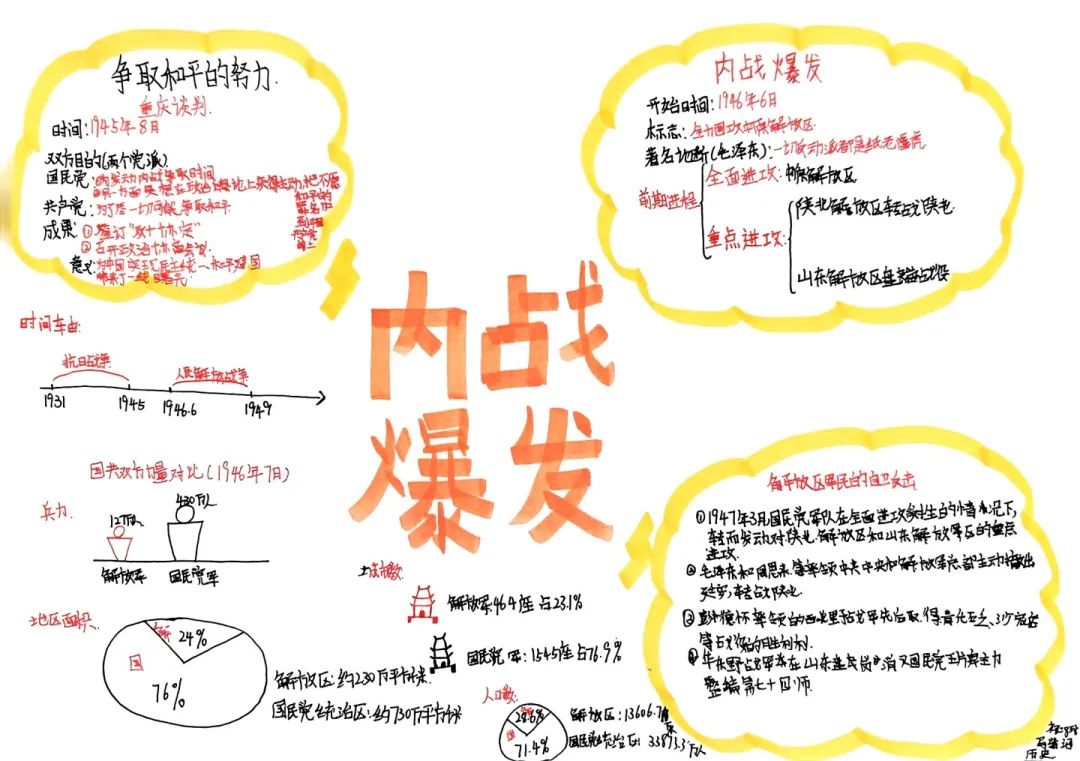 争取和平的努力
重庆谈判
时间:1945年8月
双方目的(两个党派)
国民党:
共产党:为了尽一切可能争取和平
成果:①签订"双十协定"
②召开政治协商会议
意义:
时间车由:
抗日战争
人民解放战争
1931
1945
1946.6
1949
国共双方力量对比(1946年7月)
兵力
430万人
解放军
国民党军
地区面积
24%
国
76%
解放区:约230万平方千米
国民党统治区:约730万平方千米
内战
爆发
城市数
解放军464座 占23.1%
国民党军:1545座占76.9%
人口数:
28.6%
国
71.4%
解放区:13606.7万人
国民党统治区:33873.3万人
内战爆发
开始时间:1946年6月
标志:全力围攻中原解放区
著名论断(毛泽东):一切反动派都是纸老虎
前期进程
全面进攻:中原解放区
重点进攻:
陕北解放区转战陕北
山东解放区孟良崮战役
解放区军民的自卫攻击
①1947年3月国民党军队在全面进攻失败的情况下,
转而发动对陕北解放区和山东解放区的重点
进攻.
②毛泽东和周恩来等率领中共中央和解放军总部主动撤出
延安,转战陕北
③彭德怀率领的西北野战军先后取得青化砭、沙家店
等战役的胜利
④华东野战军在山东孟良崮消灭国民党王牌军主力
整编第七十四师.
历史